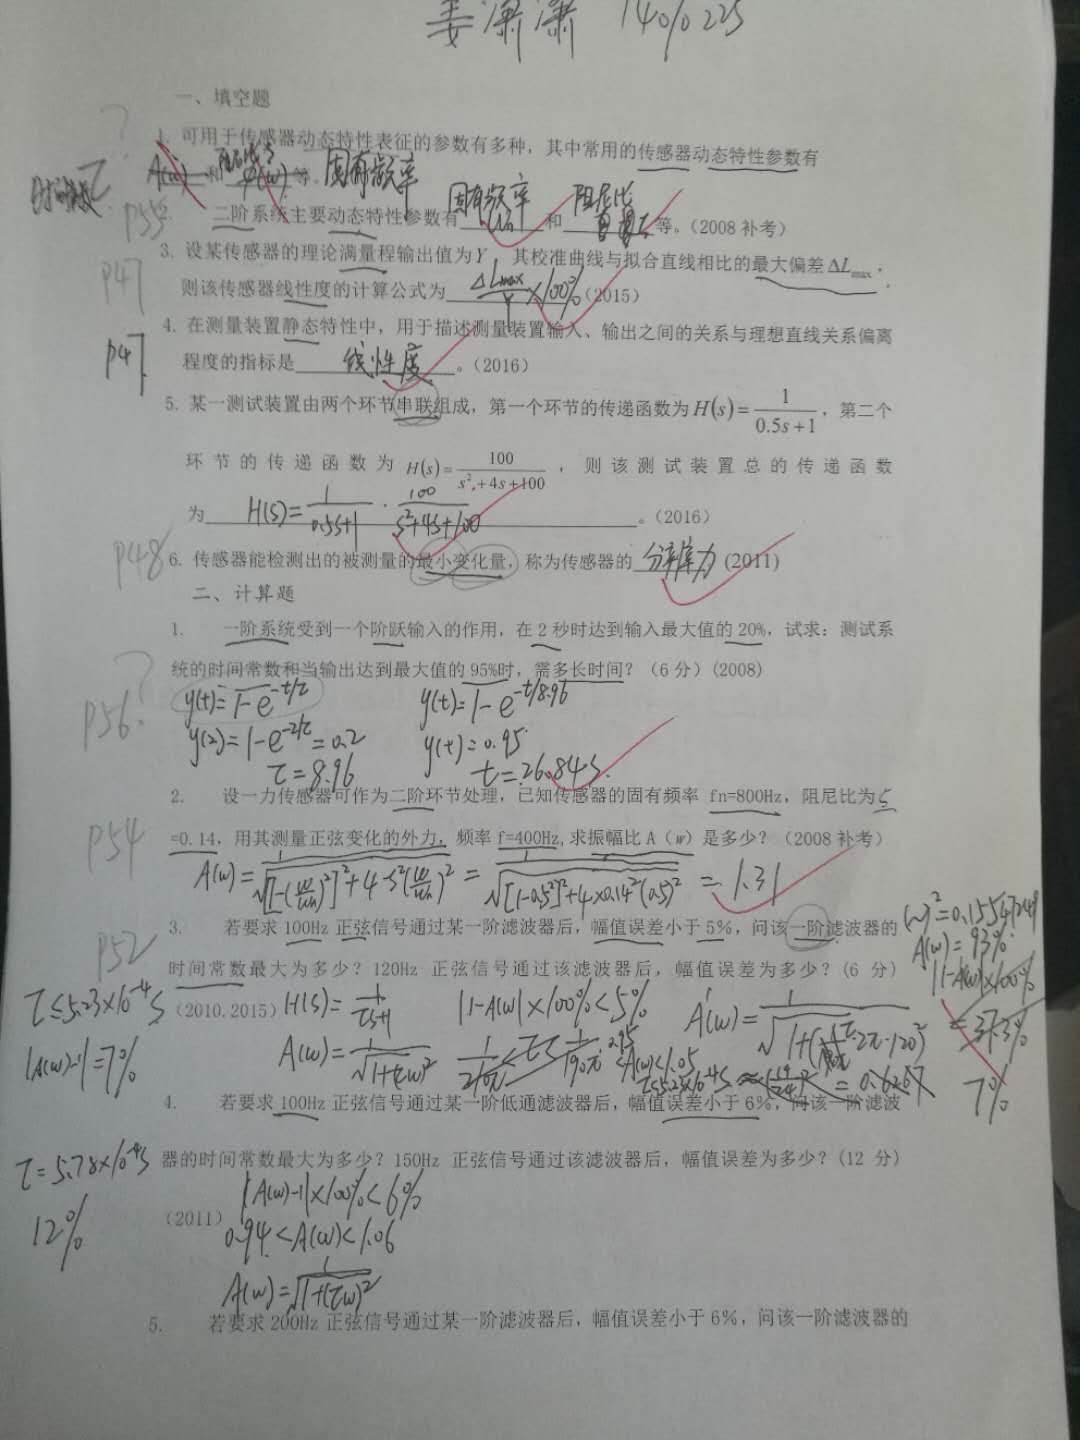 姜潇潇 140110225
一、填空题
1. 可用于传感器动态特性表征的参数有多种，其中常用的传感器动态特性参数有
时间常数τ A(ω) 和 φ(ω) 等。固有频率
P55 2. 二阶系统主要动态特性参数有 固有频率 ωn 和 阻尼比 等。(2008 补考)
P47 3. 设某传感器的理论满量程输出值为Y，其校准曲线与拟合直线相比的最大偏差ΔLmax，
则该传感器线性度的计算公式为 ΔLmax/Y ×100% (2015)
P47 4. 在测量装置静态特性中，用于描述测量装置输入、输出之间的关系与理想直线关系偏离
程度的指标是 线性度 。(2016)
5. 某一测试装置由两个环节串联组成，第一个环节的传递函数为 H(s)=1/(0.5s+1)，第二个
环节的传递函数为 H(s)=100/(s²+4s+100)，则该测试装置总的传递函数
为 H(s)=1/(0.5s+1)·100/(s²+4s+100) 。(2016)
P48 6. 传感器能检测出的被测量的最小变化量，称为传感器的 分辨力 (2011)
二、计算题
1. 一阶系统受到一个阶跃输入的作用，在 2 秒时达到输入最大值的 20%，试求：测试系
统的时间常数和当输出达到最大值的 95%时，需多长时间？（6 分）(2008)
P56 y(t)=1-e^(-t/τ) y(t)=1-e^(-t/8.96)
y(2)=1-e^(-2/τ)=0.2 y(t)=0.95
τ=8.96 t=26.84s
2. 设一力传感器可作为二阶环节处理，已知传感器的固有频率 fn=800Hz，阻尼比为ζ
P54 =0.14，用其测量正弦变化的外力，频率 f=400Hz,求振幅比 A（w）是多少？（2008 补考）
A(ω)=1/√([1-(ω/ωn)²]²+4ζ²(ω/ωn)²)=1/√([1-0.5²]²+4×0.14²(0.5)²)=1.31
P52 3. 若要求 100Hz 正弦信号通过某一阶滤波器后，幅值误差小于 5%，问该一阶滤波器的
A(ω)=93%
时间常数最大为多少？120Hz 正弦信号通过该滤波器后，幅值误差为多少？(6 分)
|1-A(ω)|×100%
τ≤5.23×10⁻⁴s (2010.2015) H(s)=1/(τs+1) |1-A(ω)|×100%<5%
=37.3%
|A(ω)-1|=7% A(ω)=1/√(1+(τω)²) 0.95<A(ω)<1.05
τ≤5.23×10⁻⁴s
7%
4. 若要求 100Hz 正弦信号通过某一阶低通滤波器后，幅值误差小于 6%，问该一阶滤波
τ=5.78×10⁻⁴s 器的时间常数最大为多少？150Hz 正弦信号通过该滤波器后，幅值误差为多少？(12 分)
12% (2011) |A(ω)-1|×100%<6%
0.94<A(ω)<1.06
A(ω)=1/√(1+(τω)²)
5. 若要求 200Hz 正弦信号通过某一阶滤波器后，幅值误差小于 6%，问该一阶滤波器的